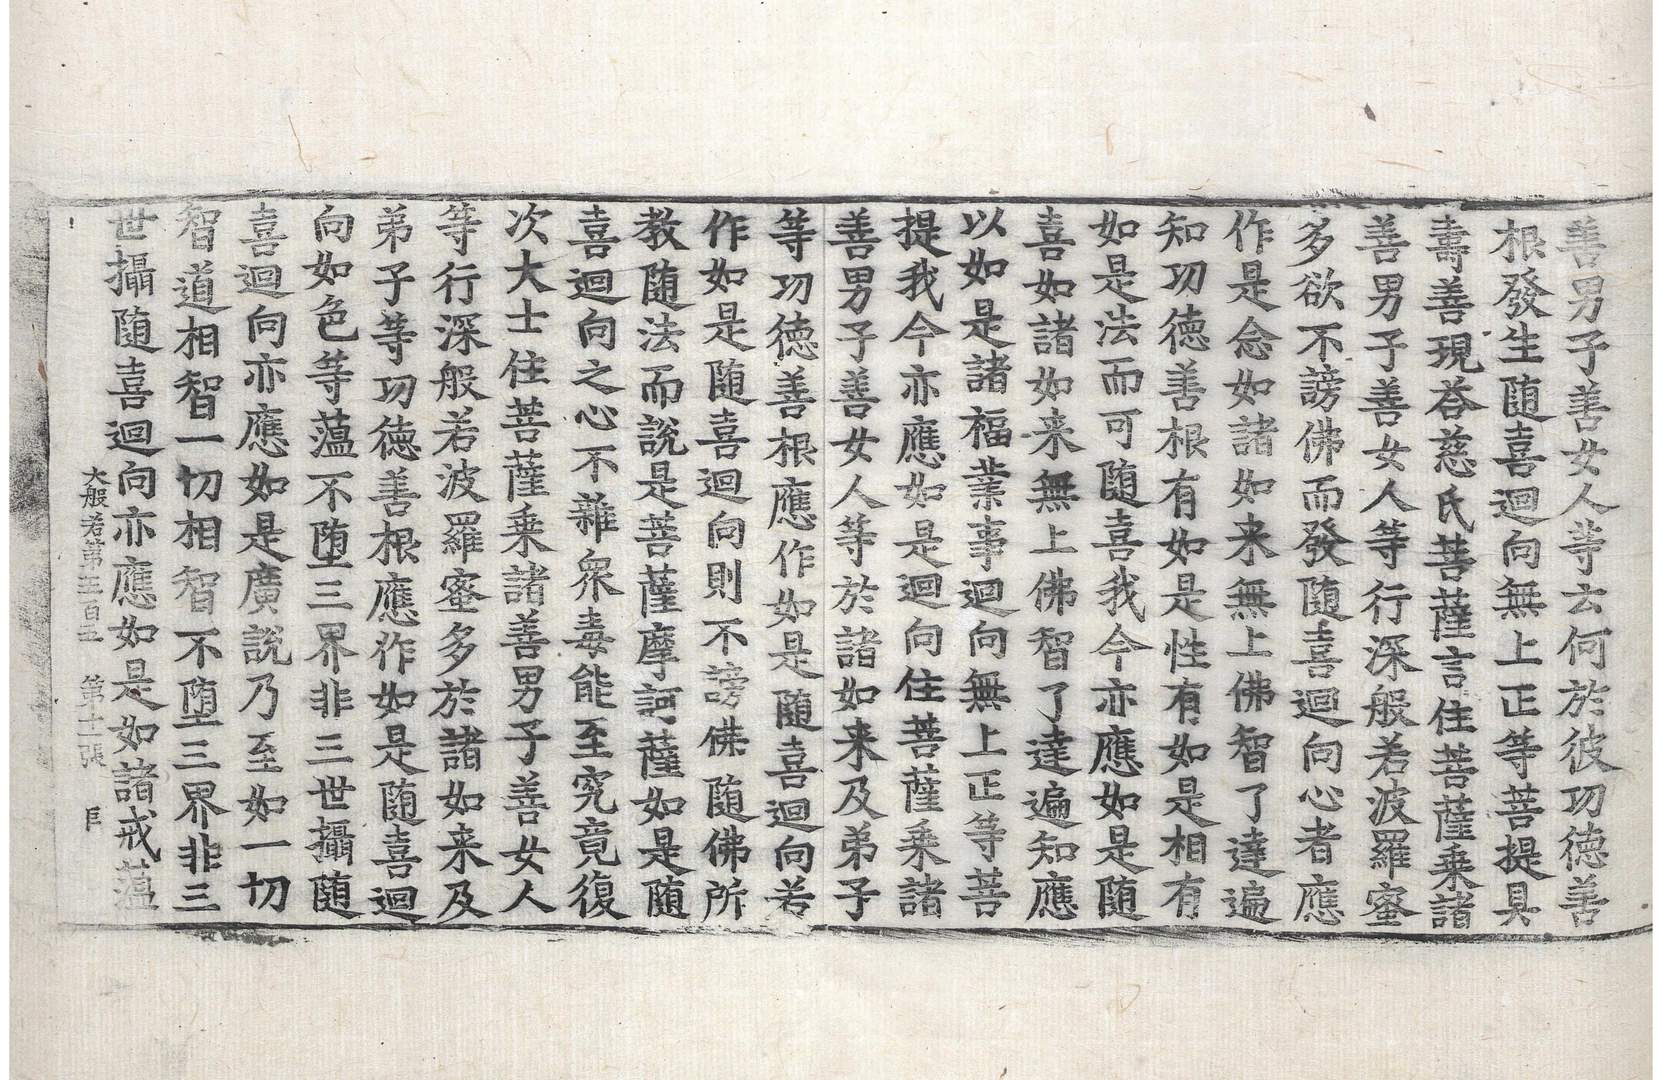 善男子善女人等云何於彼功德善
根發生随喜迴向無上正等菩提具
壽善現荅慈氏菩薩言住菩薩乗諸
善男子善女人等行深般若波羅蜜
多欲不謗佛而發随喜迴向心者應
作是念如諸如来無上佛智了達遍
知功德善根有如是性有如是相有
如是法而可随喜我今亦應如是随
喜如諸如来無上佛智了達遍知應
以如是諸福業事迴向無上正等菩
提我今亦應如是迴向住菩薩乗諸
善男子善女人等於諸如来及弟子
等功德善根應作如是随喜迴向若
作如是随喜迴向則不謗佛随佛所
教随法而說是菩薩摩訶薩如是随
喜迴向之心不雜衆毒能至究竟復
次大士住菩薩乗諸善男子善女人
等行深般若波羅蜜多於諸如来及
弟子等功德善根應作如是随喜迴
向如色等蘊不堕三界非三世攝随
喜迴向亦應如是廣說乃至如一切
智道相智一切相智不堕三界非三
世攝随喜迴向亦應如是如諸戒蘊
大般若第五百五 第十一張